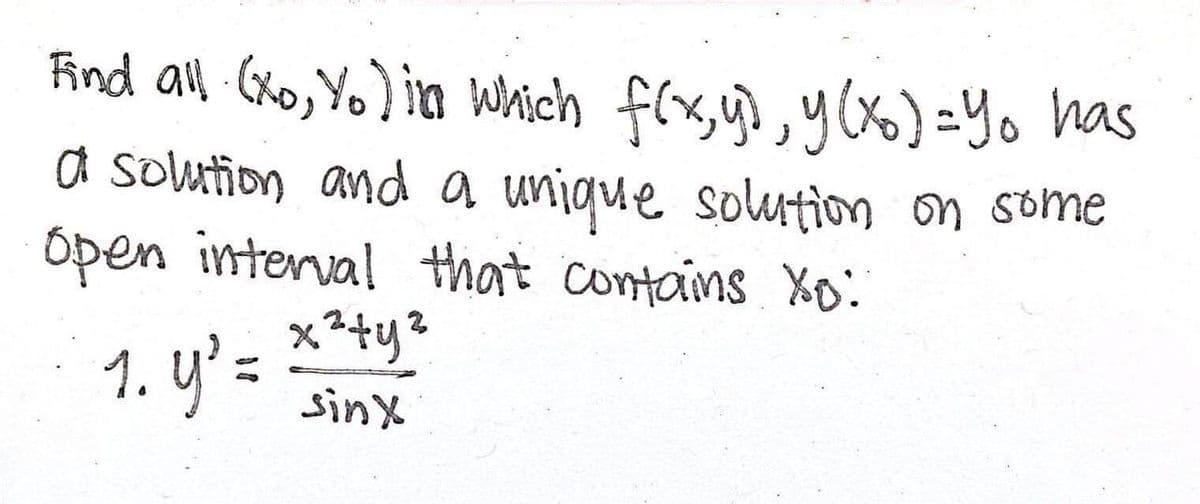 Find all (x₀, y₀) in which f(x,y), y(x₀) = y₀ has
a solution and a unique solution on some
open interval that contains x₀:
1. y' = x²+y² / sinx